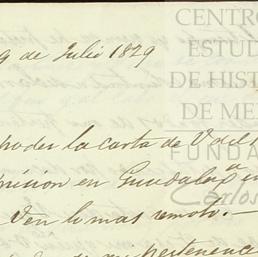 9 de Julio 1829
CENTRO
ESTUD
DE HIST
DE ME
FUNDA
Carlos
poder la carta de V del
mision en Guadalupe en
V en lo mas remoto.—
pertenenc